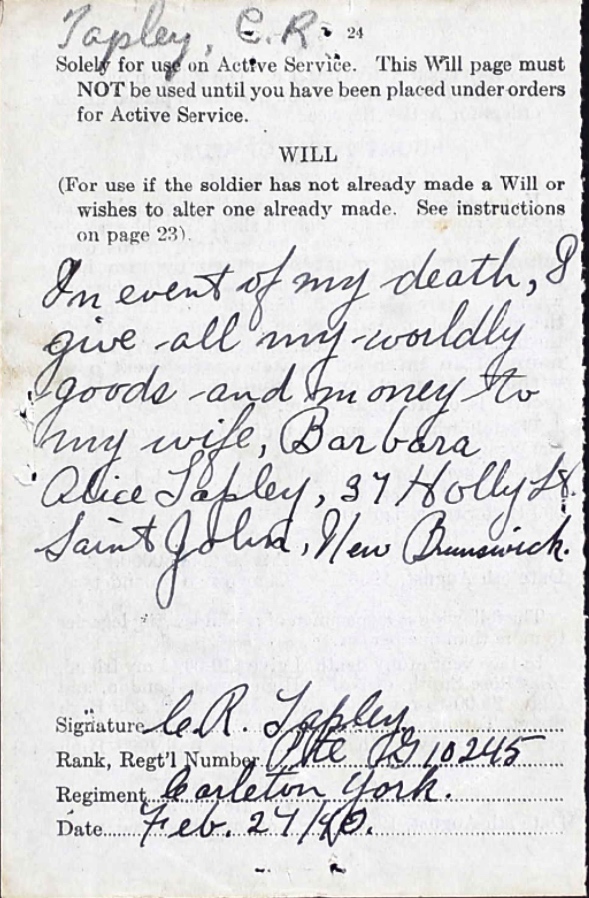 Tapley, C.R. 24
Solely for use on Active Service. This Will page must
NOT be used until you have been placed under orders
for Active Service.
WILL
(For use if the soldier has not already made a Will or
wishes to alter one already made. See instructions
on page 23).
In event of my death, I
give all my worldly
goods and money to
my wife, Barbara
Alice Tapley, 37 Holly St.
Saint John, New Brunswick.
Signature C.R. Tapley
Rank, Regt'l Number Pte G 10245
Regiment Carleton York.
Date Feb. 27/40.